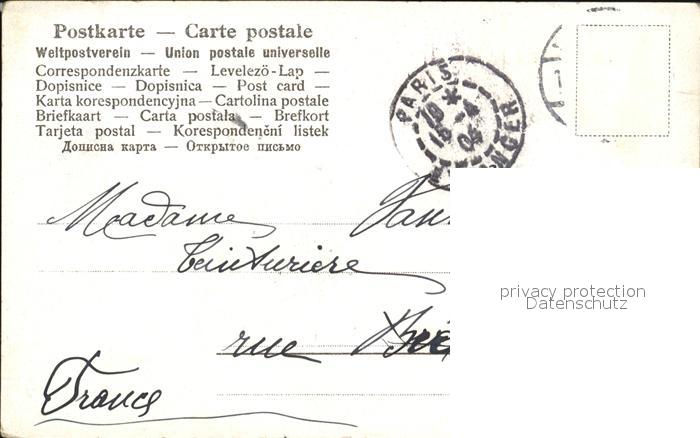 Postkarte — Carte postale
Weltpostverein — Union postale universelle
Correspondenzkarte — Levelező-Lap —
Dopisnice — Dopisnica — Post card —
Karta korespondencyjna — Cartolina postale
Briefkaart — Carta postala — Brefkort
Tarjeta postal — Korespondenční listek
Дописна карта — Открытое письмо
PARIS
ETRANGER
Madame
teinturière
privacy protection
Datenschutz
rue
France